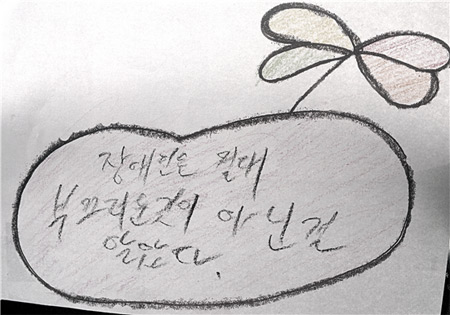 장애인은 절대
부끄러운것이 아닌걸
알았다.